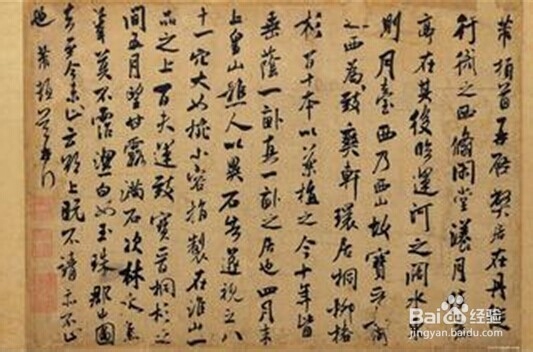 芾頓首再啓弊居在丹徒
行衙之西翛閑堂漾月佳
亭在其後臨運河之闊水
則月臺西乃西山故寶晉齋
之西爲致爽軒環居桐柳椿
杉百十本以藥植之今十年皆
垂蔭一畝真一畝之居也四月末
上皇山樵人以異石告遂視之八
十一穴大如椀小容指製在淮山一
品之上百夫運致寶晉桐杉之
間五月望甘露滿石次林木焦
葦莫不霑潔白如玉珠郡中圖
去至今未止云欲上既不請亦不止
也芾頓首
Baidu经验
jingyan.baidu.com